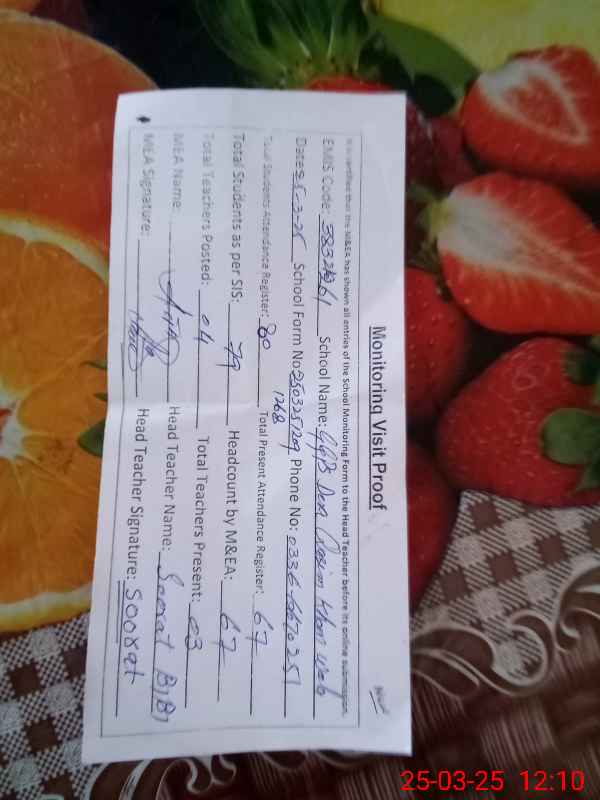 Monitoring Visit Proof
It is certified that the M&EA has shown all entries of the School Monitoring Form to the Head Teacher before its online submission.
EMIS Code: School Name: GGPS Dera Khan
Date: 25-3-25 School Form No: 250325129 Phone No:
1268
Total Students Attendance Register: 80 Total Present Attendance Register: 67
Total Students as per SIS: 79 Headcount by M&EA: 67
Total Teachers Posted: 04 Total Teachers Present: 03
MEA Name: Head Teacher Name: Soorat BiBi
MEA Signature: Head Teacher Signature: Soorat
25-03-25 12:10